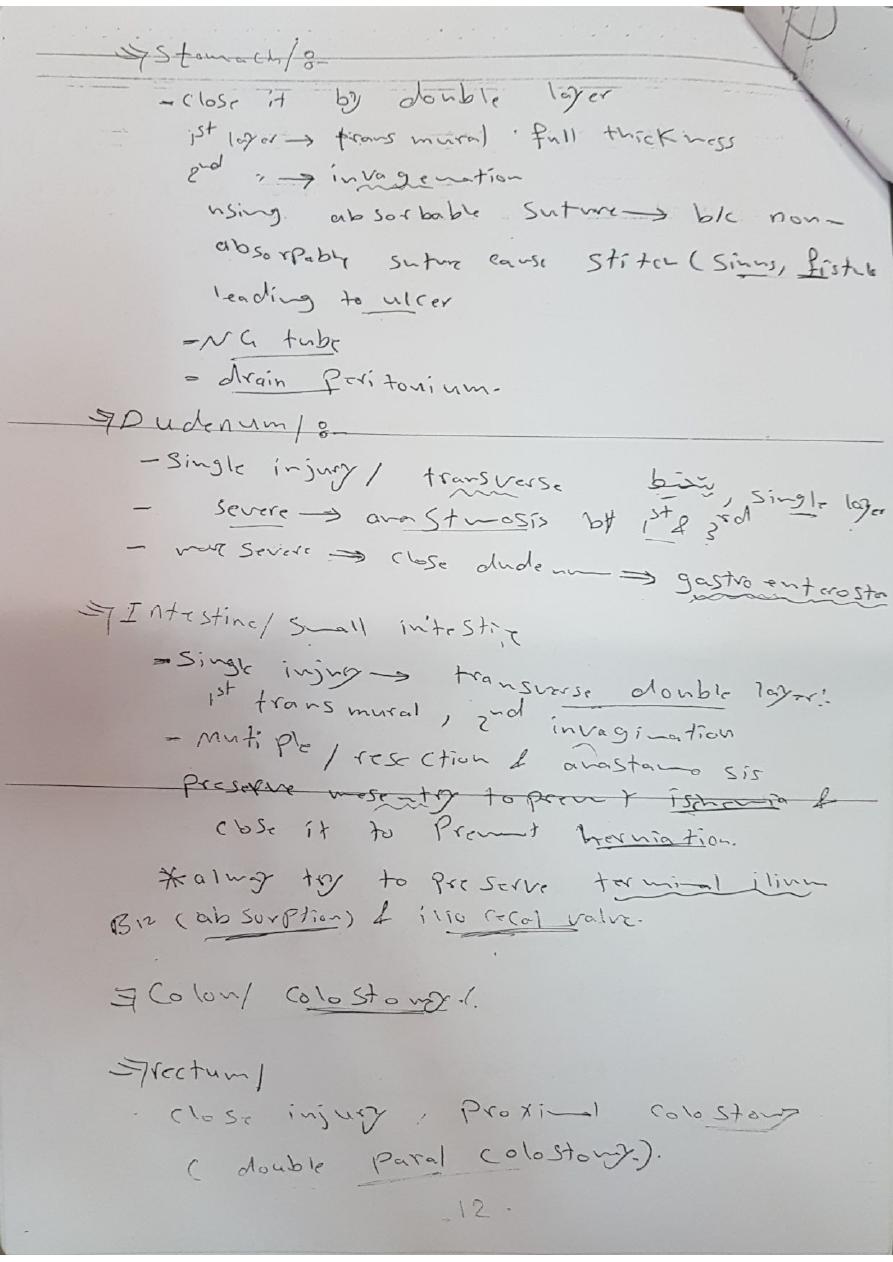 ⇒ Stomach/:-
- close it by double layer
1st layer → transmural. full thickness
2nd " → invagenation
using absorbable suture → b/c non-
absorpably suture cause stitch (sinus, fistula
leading to ulcer
- NG tube
- drain peritonium.
⇒ Dudenum/:-
- Single injury/ transverse يتخيط, single layer
- severe → anastmosis by 1st & 3rd
- more severe ⇒ close dudenum ⇒ gastroenterosto
⇒ Intestine/ small intestine
- Single injury → transverse double layer:
1st transmural, 2nd invagination
- Mutiple / resection & anastamosis
preserve mesentry to prevent ischemia &
close it to prevent herniation.
* alway try to preserve terminal ilium
B12 (absorption) & iliocecal valve.
⇒ Colon/ colostomy.
⇒ rectum/
close injury, proximal colostomy
(double paral colostomy).
12.